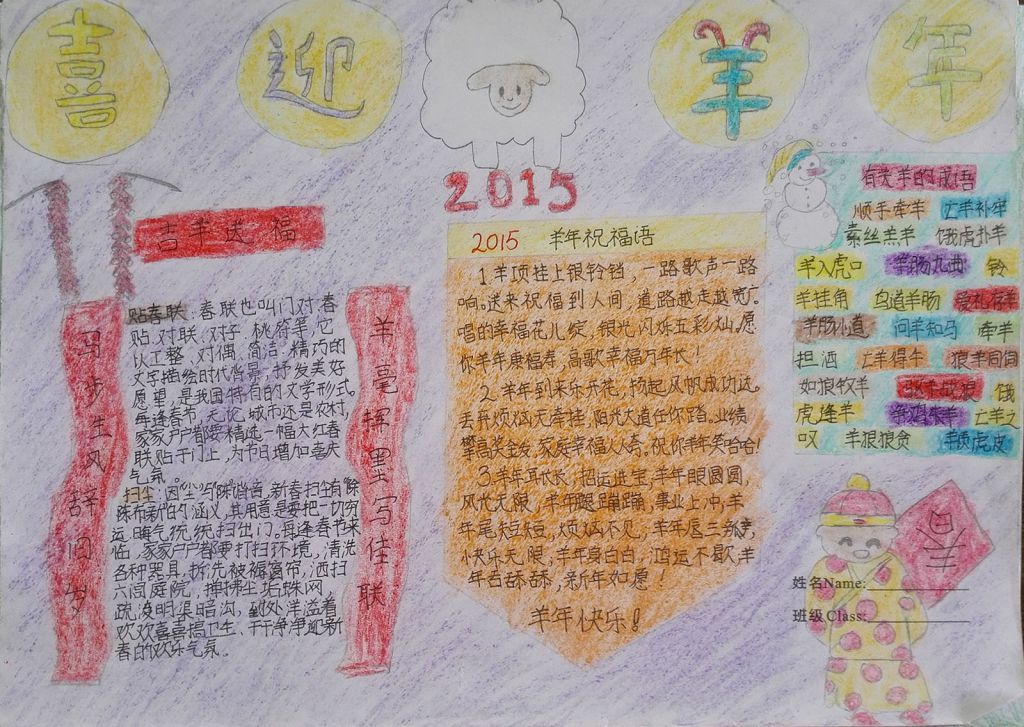 喜迎羊年
2015
吉羊送福
马步生风辞旧岁
贴春联:春联也叫门对、春
贴、对联、对子、桃符等,它
以工整、对偶、简洁、精巧的
文字描绘时代背景,抒发美好
愿望,是我国特有的文学形式。
每逢春节,无论城市还是农村,
家家户户都要精选一幅大红春
联贴于门上,为节日增加喜庆
气氛。
扫尘:因"尘"与"陈"谐音,新春扫尘有"除
陈布新"的涵义,其用意是要把一切穷
运、晦气统统扫出门。每逢春节来
临,家家户户都要打扫环境,清洗
各种器具,拆洗被褥窗帘,洒扫
六闾庭院,掸拂尘垢蛛网,
疏浚明渠暗沟,到处洋溢着
欢欢喜喜搞卫生、干干净净迎新
春的欢乐气氛。
羊毫挥墨写佳联
2015 羊年祝福语
1.羊项挂上银铃铛,一路歌声一路
响。送来祝福到人间,道路越走越宽广。
唱的幸福花儿绽,银光闪烁五彩灿。愿
你羊年康福寿,高歌幸福万年长!
2.羊年到来乐开花,扬起风帆成功达。
丢弃烦恼无牵挂,阳光大道任你踏。业绩
攀高奖金发,家庭幸福人人夸。祝你羊年笑哈哈!
3.羊年耳长长,招运进宝,羊年眼圆圆,
风光无限,羊年腿蹦蹦,事业上冲,羊
年尾短短,烦恼不见,羊年唇三瓣,
快乐无限,羊年身白白,鸿运不歇,羊
年舌舔舔,新年如愿!
羊年快乐!
有关羊的成语
顺手牵羊 亡羊补牢
素丝羔羊 饿虎扑羊
羊入虎口 羊肠九曲 羚
羊挂角 鸟道羊肠 爱礼存羊
羊肠小道 问羊知马 牵羊
担酒 亡羊得牛 狼羊同饲
如狼牧羊 驱羊战狼 饿
虎逢羊 争鸡失羊 亡羊之
叹 羊狠狼贪 羊质虎皮
春
姓名Name:
班级Class: